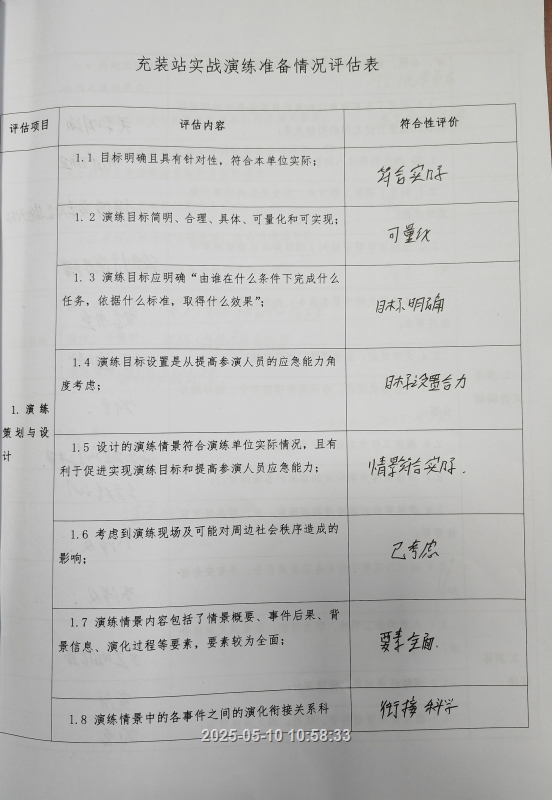 充装站实战演练准备情况评估表
评估项目 评估内容 符合性评价
1.1 目标明确且具有针对性，符合本单位实际；
符合实际
1.2 演练目标简明、合理、具体、可量化和可实现；
可量化
1.3 演练目标应明确“由谁在什么条件下完成什么
任务，依据什么标准，取得什么效果”；
目标明确
1.4 演练目标设置是从提高参演人员的应急能力角
度考虑；
目标设置合力
1. 演练
策划与设
计
1.5 设计的演练情景符合演练单位实际情况，且有
利于促进实现演练目标和提高参演人员应急能力；
情景符合实际.
1.6 考虑到演练现场及可能对周边社会秩序造成的
影响；
已考虑
1.7 演练情景内容包括了情景概要、事件后果、背
景信息、演化过程等要素，要素较为全面；
要素全面.
1.8 演练情景中的各事件之间的演化衔接关系科
衔接科学
2025-05-10 10:58:33